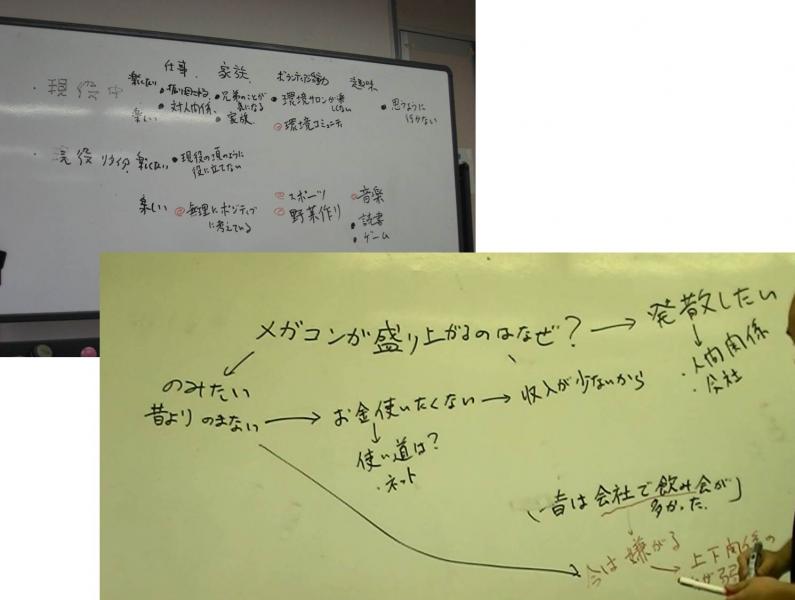 仕事 家族 ボランティア活動 趣味
・現役中 楽しくない ・対人関係、 ・兄弟のことが気になる ・環境サロンが楽しくない ・思うように行かない
楽しい ・家族 ◎環境コミュニティ
・現役リタイア 楽しくない ・現役の頃のように
役に立てない
楽しい ◎無理にポジティブ
に考えている
◎スポーツ ◎音楽
◎野菜作り ・読書
・ゲーム
メガコンが盛り上がるのはなぜ? → 発散したい
・人間関係
・会社
のみたい
昔よりのまない → お金使いたくない → 収入が少ないから
使い道は?
・ネット
(昔は会社で飲み会が
多かった)
今は嫌がる → 上下関係の